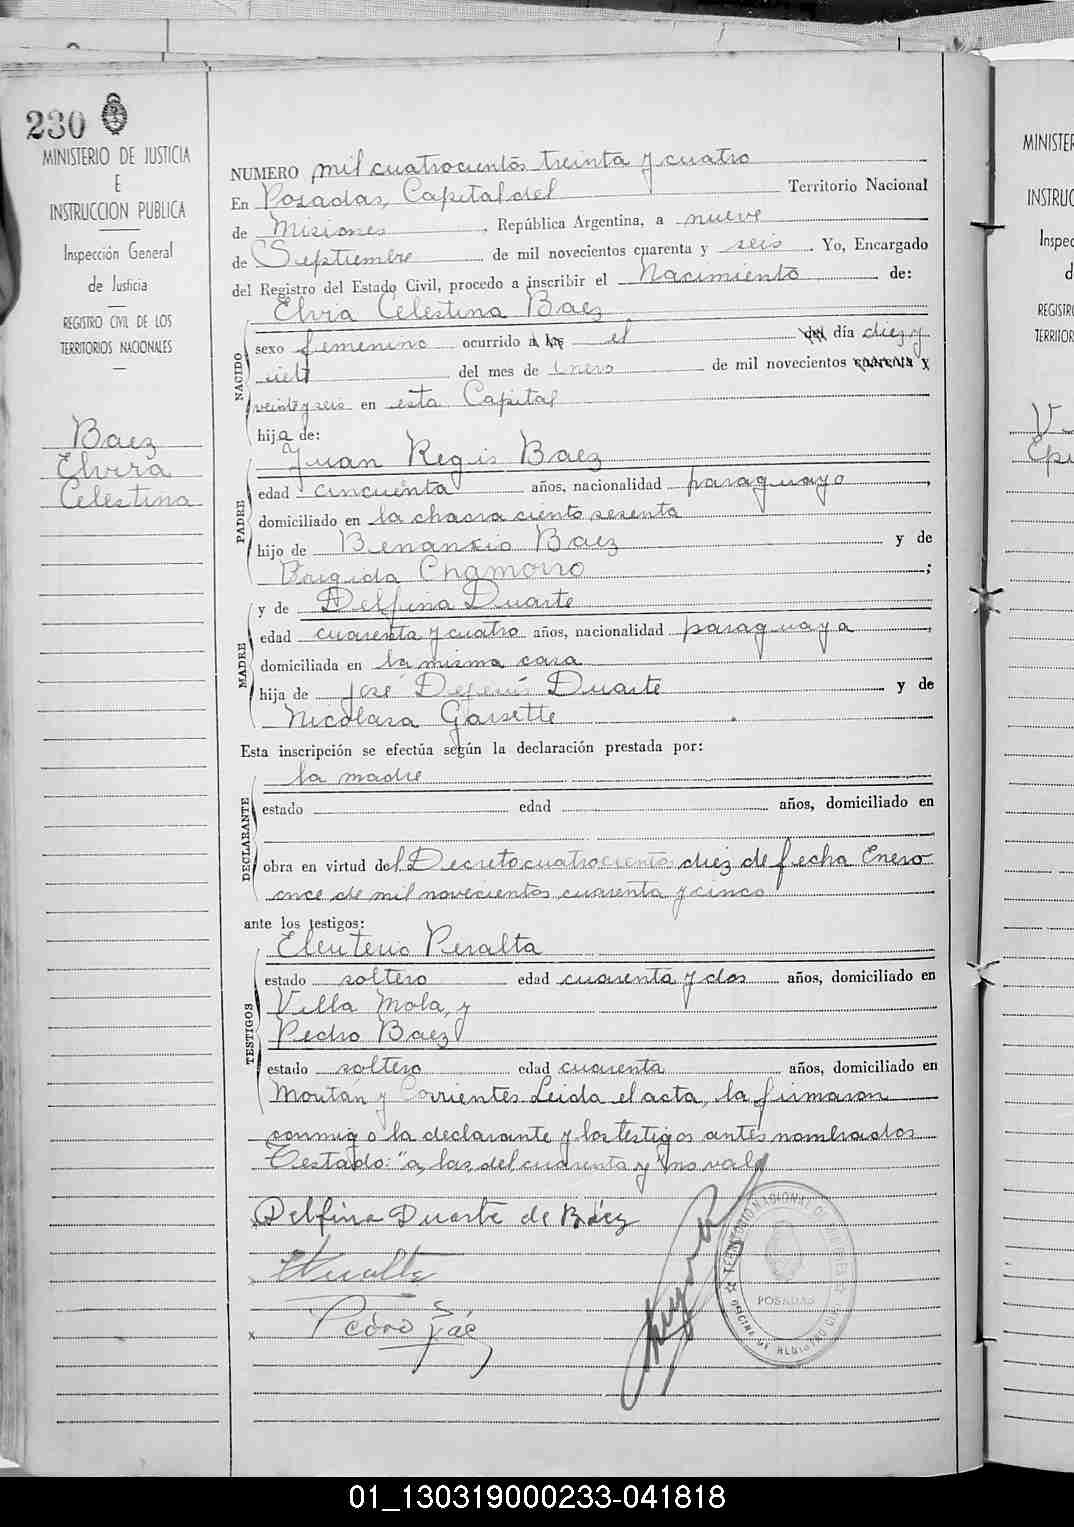 230
MINISTERIO DE JUSTICIA
E
INSTRUCCION PUBLICA
Inspección General
de Justicia
REGISTRO CIVIL DE LOS
TERRITORIOS NACIONALES
Baez
Elvira
Celestina
NUMERO mil cuatrocientos treinta y cuatro
En Posadas, Capital del Territorio Nacional
de Misiones, República Argentina, a nueve
de Septiembre de mil novecientos cuarenta y seis. Yo, Encargado
del Registro del Estado Civil, procedo a inscribir el Nacimiento de:
NACIDO
Elvia Celestina Baez
sexo femenino ocurrido a las el del día diez y
siete del mes de Enero de mil novecientos cuarenta y
veinte y seis en esta Capital
hija de:
PADRE
Juan Regis Baez
edad cincuenta años, nacionalidad paraguayo,
domiciliado en la chacra ciento sesenta
hijo de Benancio Baez y de
Brigida Chamorro;
MADRE
y de Delfina Duarte
edad cuarenta y cuatro años, nacionalidad paraguaya,
domiciliada en la misma casa
hija de José Duarte y de
Nicolasa
Esta inscripción se efectúa según la declaración prestada por:
DECLARANTE
la madre
estado edad años, domiciliado en
obra en virtud del Decreto cuatrocientos diez de fecha Enero
once de mil novecientos cuarenta y cinco
ante los testigos:
TESTIGOS
Eleuterio Peralta
estado soltero edad cuarenta y dos años, domiciliado en
Villa Mola, y
Pedro Baez
estado soltero edad cuarenta años, domiciliado en
Moután y Corrientes. Leida el acta, la firmaron
conmigo la declarante y los testigos antes nombrados
Testado: "a, las, del cuarenta y" no vale
Delfina Duarte de Báez
EPeralta
x Pedro Báez
TERRITORIO NACIONAL DE MISIONES
POSADAS
OFICINA DE REGISTRO CIVIL
MINISTER
INSTRUC
Inspec
d
REGISTR
TERRITOR
01_130319000233-041818